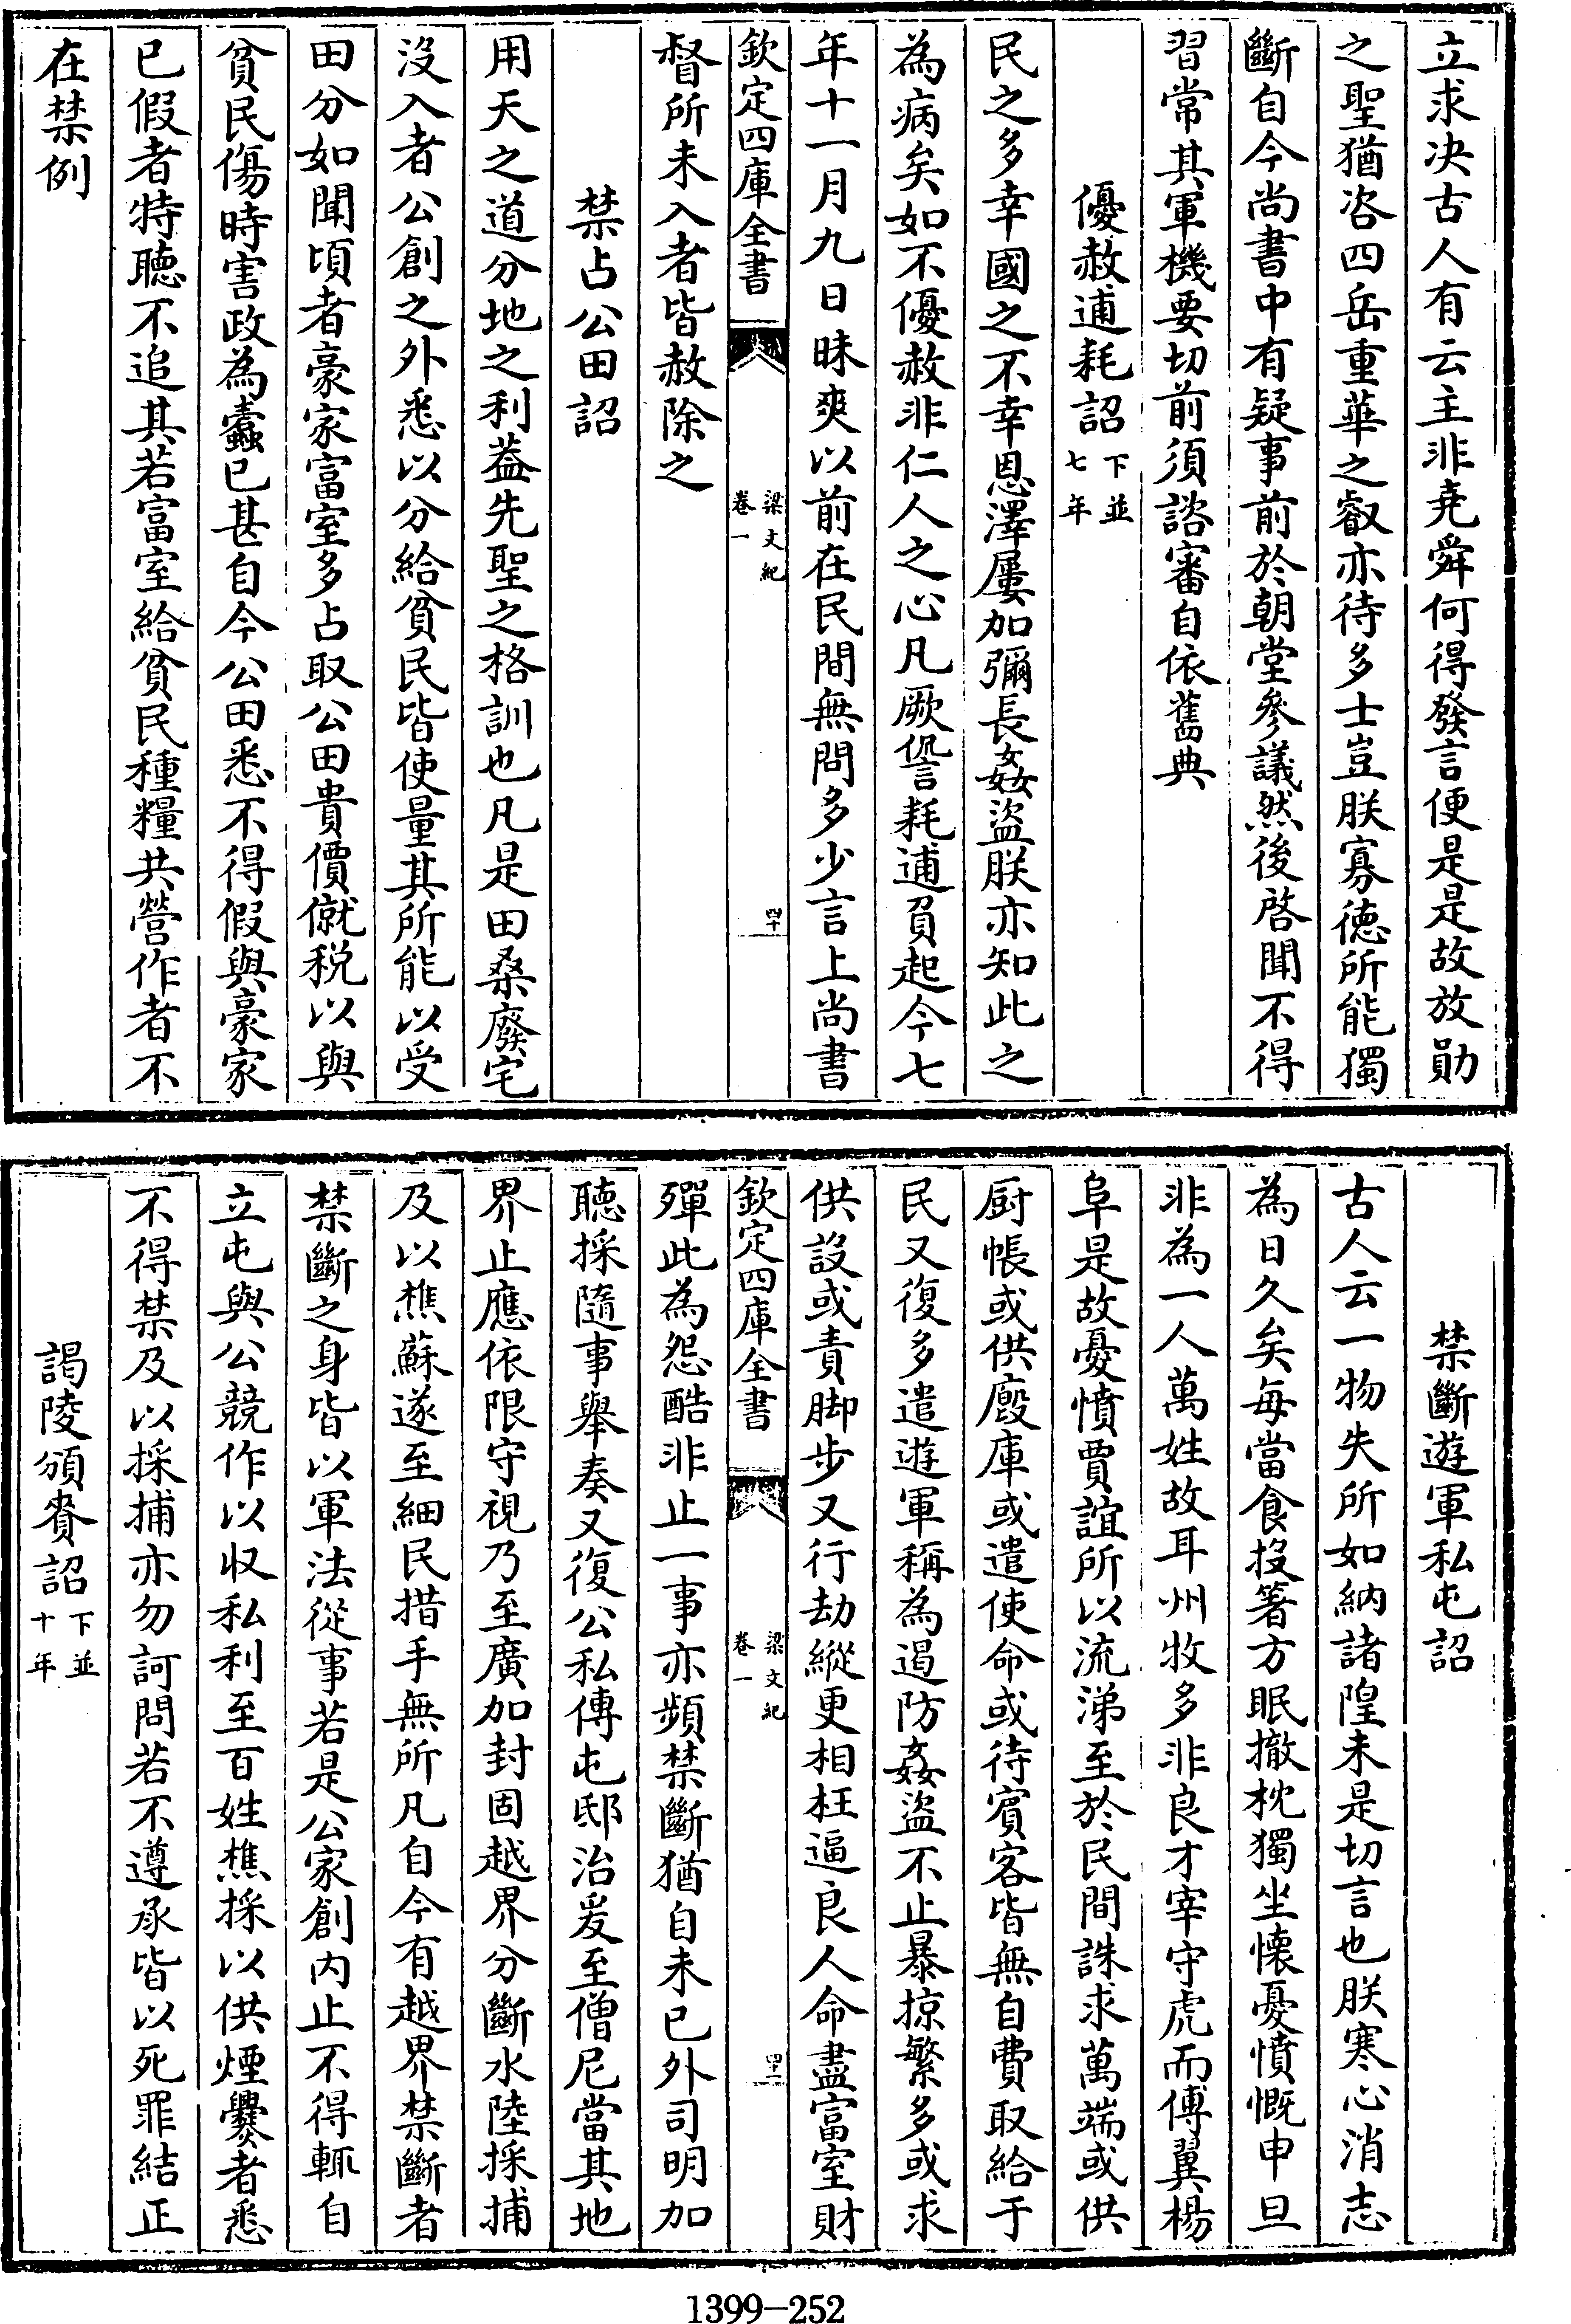 立求决古人有云主非堯舜何得發言便是是故放勛
之聖猶咨四岳重華之叡亦待多士豈朕寡德所能獨
斷自今尚書中有疑事前於朝堂參議然後啓聞不得
習常其軍機要切前須諮審自依舊典
優赦逋耗詔下並七年
民之多幸國之不幸恩澤屢加彌長姦盜朕亦知此之
為病矣如不優赦非仁人之心凡厥愆耗逋負起今七
年十一月九日昧爽以前在民間無問多少言上尚書
欽定四庫全書
梁文紀
卷一
四十
督所未入者皆赦除之
禁占公田詔
用天之道分地之利葢先聖之格訓也凡是田桑廢宅
沒入者公創之外悉以分給貧民皆使量其所能以受
田分如聞頃者豪家富室多占取公田貴價僦税以與
貧民傷時害政為蠹已甚自今公田悉不得假與豪家
已假者特聽不追其若富室給貧民種糧共營作者不
在禁例
禁斷遊軍私屯詔
古人云一物失所如納諸隍未是切言也朕寒心消志
為日久矣每當食投箸方眠撤枕獨坐懐憂憤慨申旦
非為一人萬姓故耳州牧多非良才宰守虎而傅翼楊
阜是故憂憤賈誼所以流涕至於民間誅求萬端或供
厨帳或供廐庫或遣使命或待賓客皆無自費取給于
民又復多遣遊軍稱為遏防姦盜不止暴掠繁多或求
供設或責脚步又行劫縱更相枉逼良人命盡富室財
欽定四庫全書
梁文紀
卷一
四十一
殫此為怨酷非止一事亦頻禁斷猶自未已外司明加
聽採隨事舉奏又復公私傳屯邸治爰至僧尼當其地
界止應依限守視乃至廣加封固越界分斷水陸採捕
及以樵蘇遂至細民措手無所凡自今有越界禁斷者
禁斷之身皆以軍法從事若是公家創内止不得輒自
立屯與公競作以收私利至百姓樵採以供煙爨者悉
不得禁及以採捕亦勿訶問若不遵承皆以死罪結正
謁陵頒賚詔下並十年
1399-252